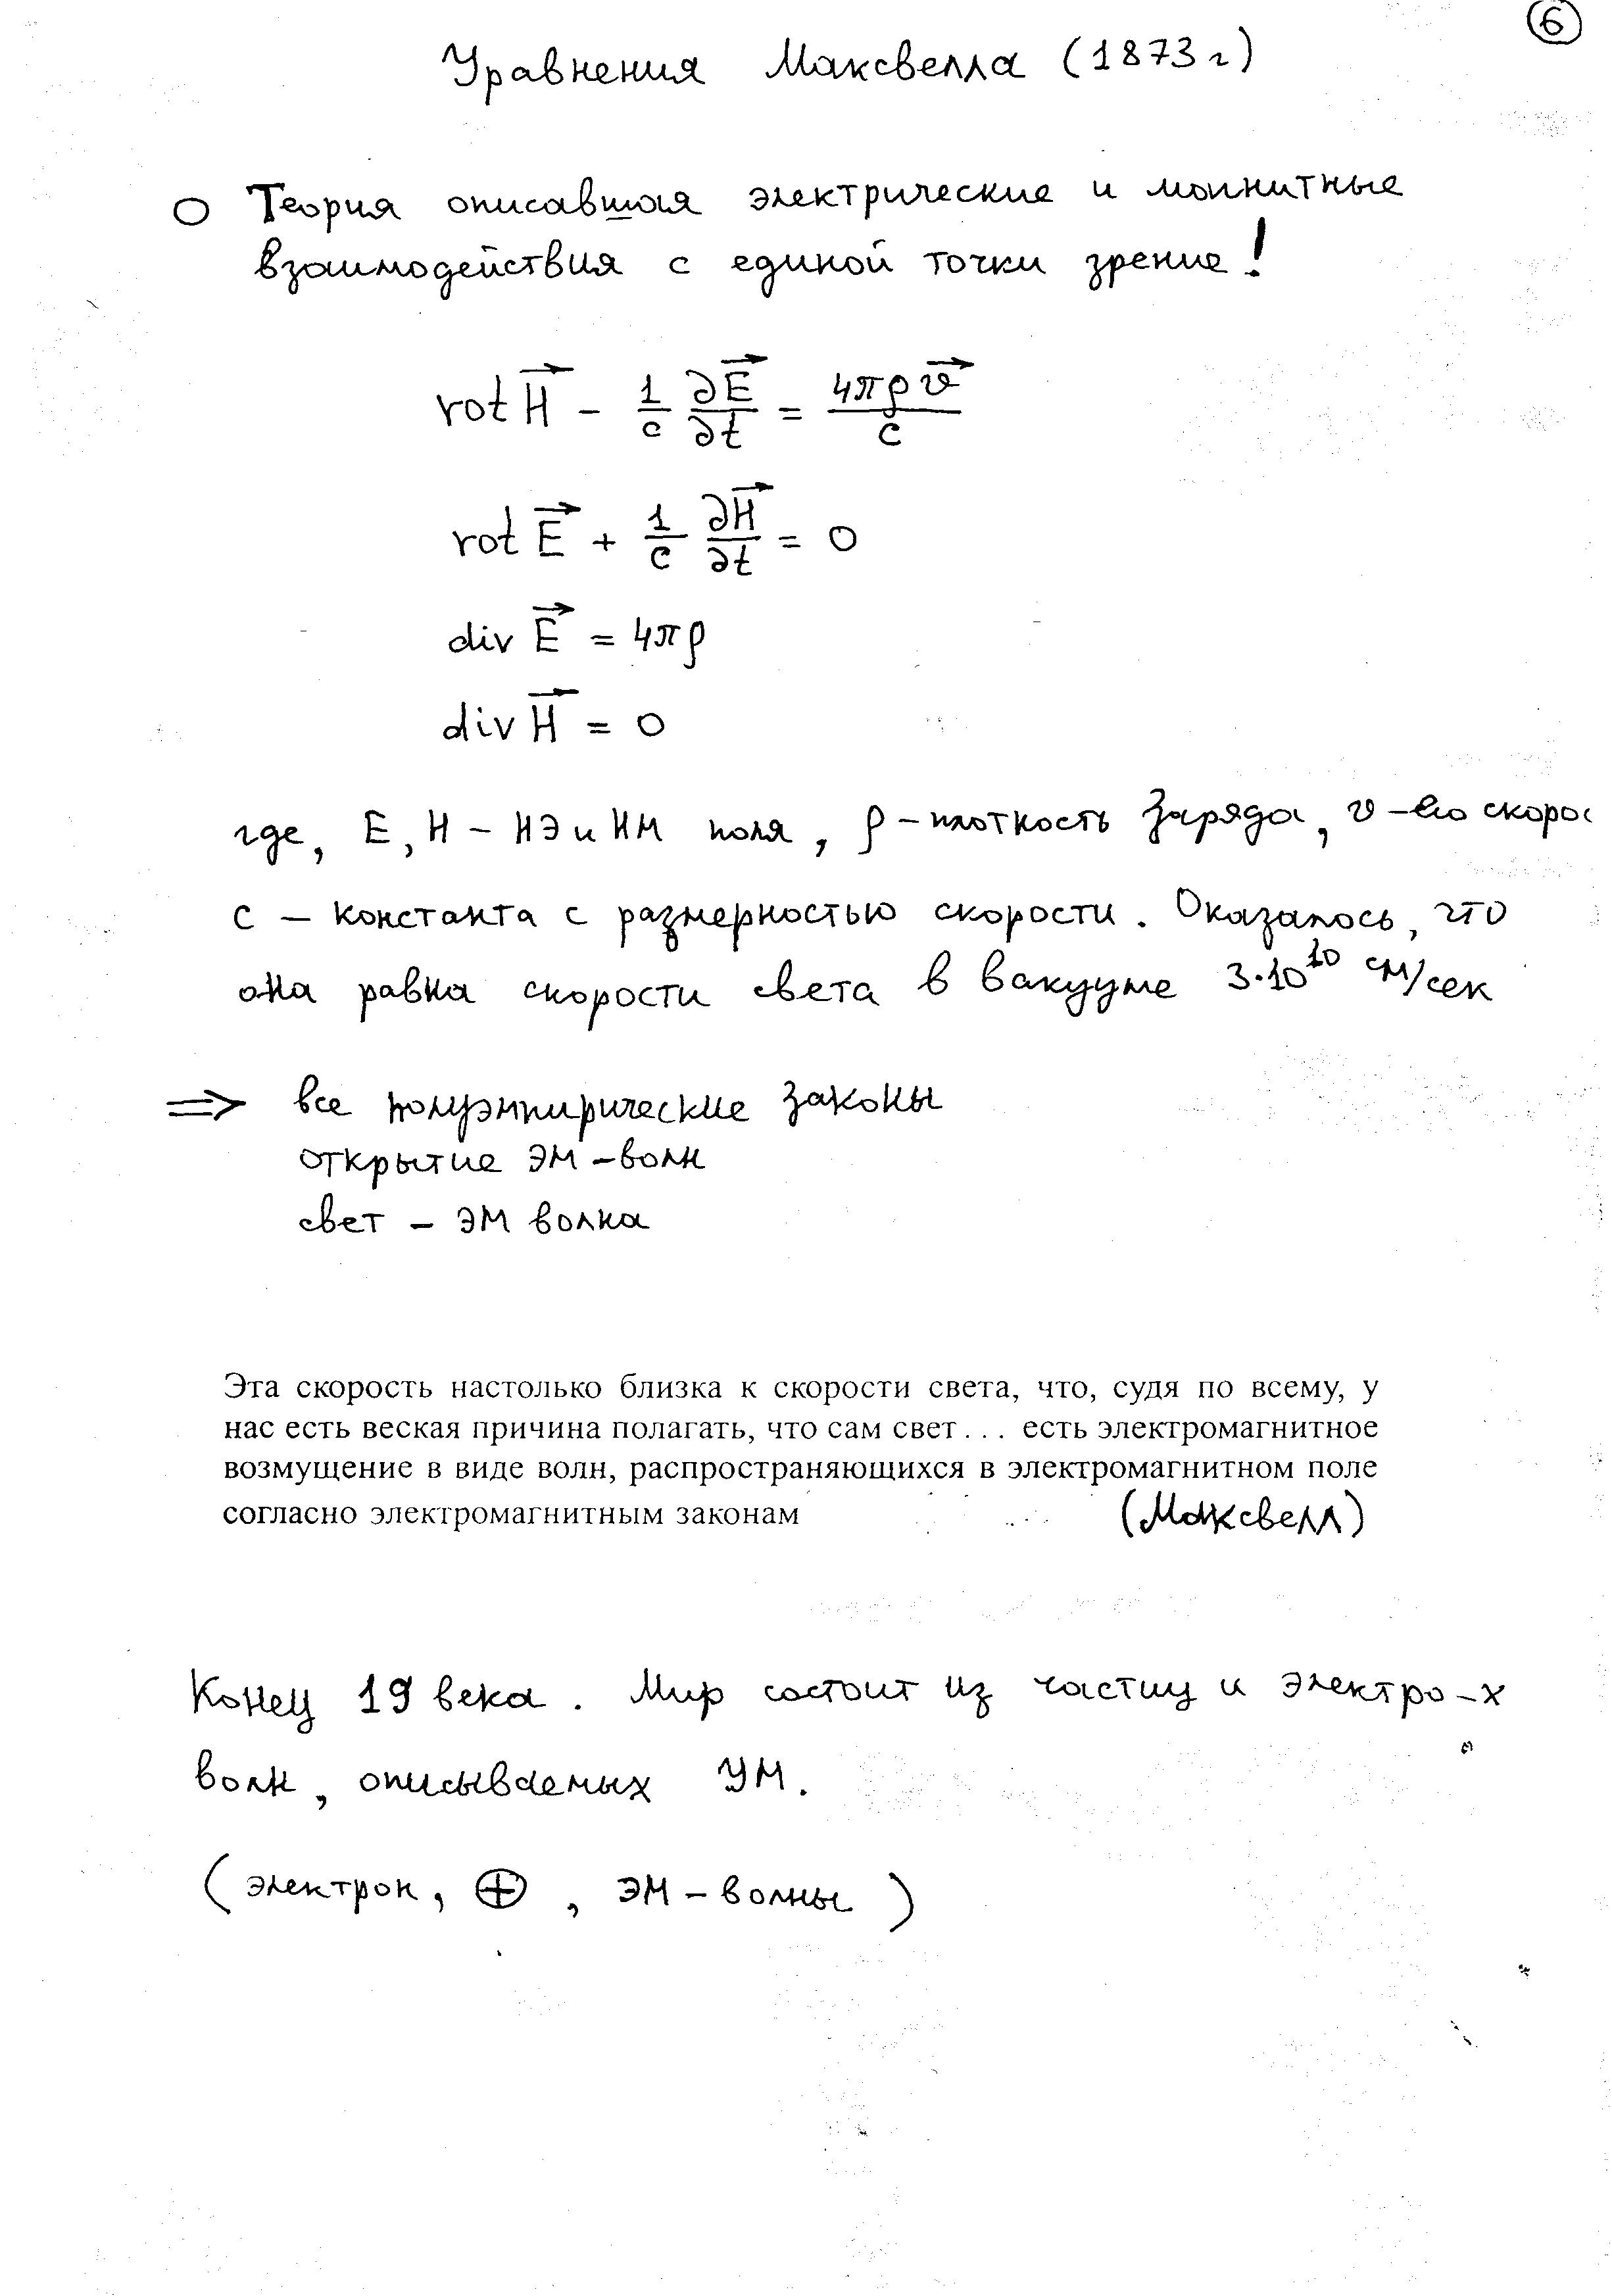 6
Уравнения Максвелла (1873 г)
Теория описавшая электрические и магнитные
взаимодействия с единой точки зрение!
rot H⃗ - 1/c ∂E⃗/∂t = 4πρv⃗/c
rot E⃗ + 1/c ∂H⃗/∂t = 0
div E⃗ = 4πρ
div H⃗ = 0
где, E, H - НЭ и НМ поля, ρ - плотность заряда, v - его скорос
c - константа с размерностью скорости. Оказалось, что
она равна скорости света в вакууме 3·10¹⁰ см/сек
⇒ все полуэмпирические законы
открытие ЭМ-волн
свет - ЭМ волна
Эта скорость настолько близка к скорости света, что, судя по всему, у
нас есть веская причина полагать, что сам свет... есть электромагнитное
возмущение в виде волн, распространяющихся в электромагнитном поле
согласно электромагнитным законам (Максвелл)
Конец 19 века. Мир состоит из частиц и электро-х
волн, описываемых УМ.
(электрон, ⊕, ЭМ-волны)